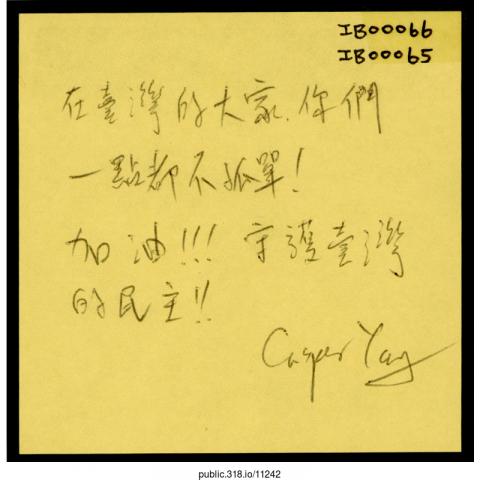 IB00066
IB00065
在臺灣的大家.你們
一點都不孤單!
加油!!! 守護臺灣
的民主!!
Casper Yang
public.318.io/11242